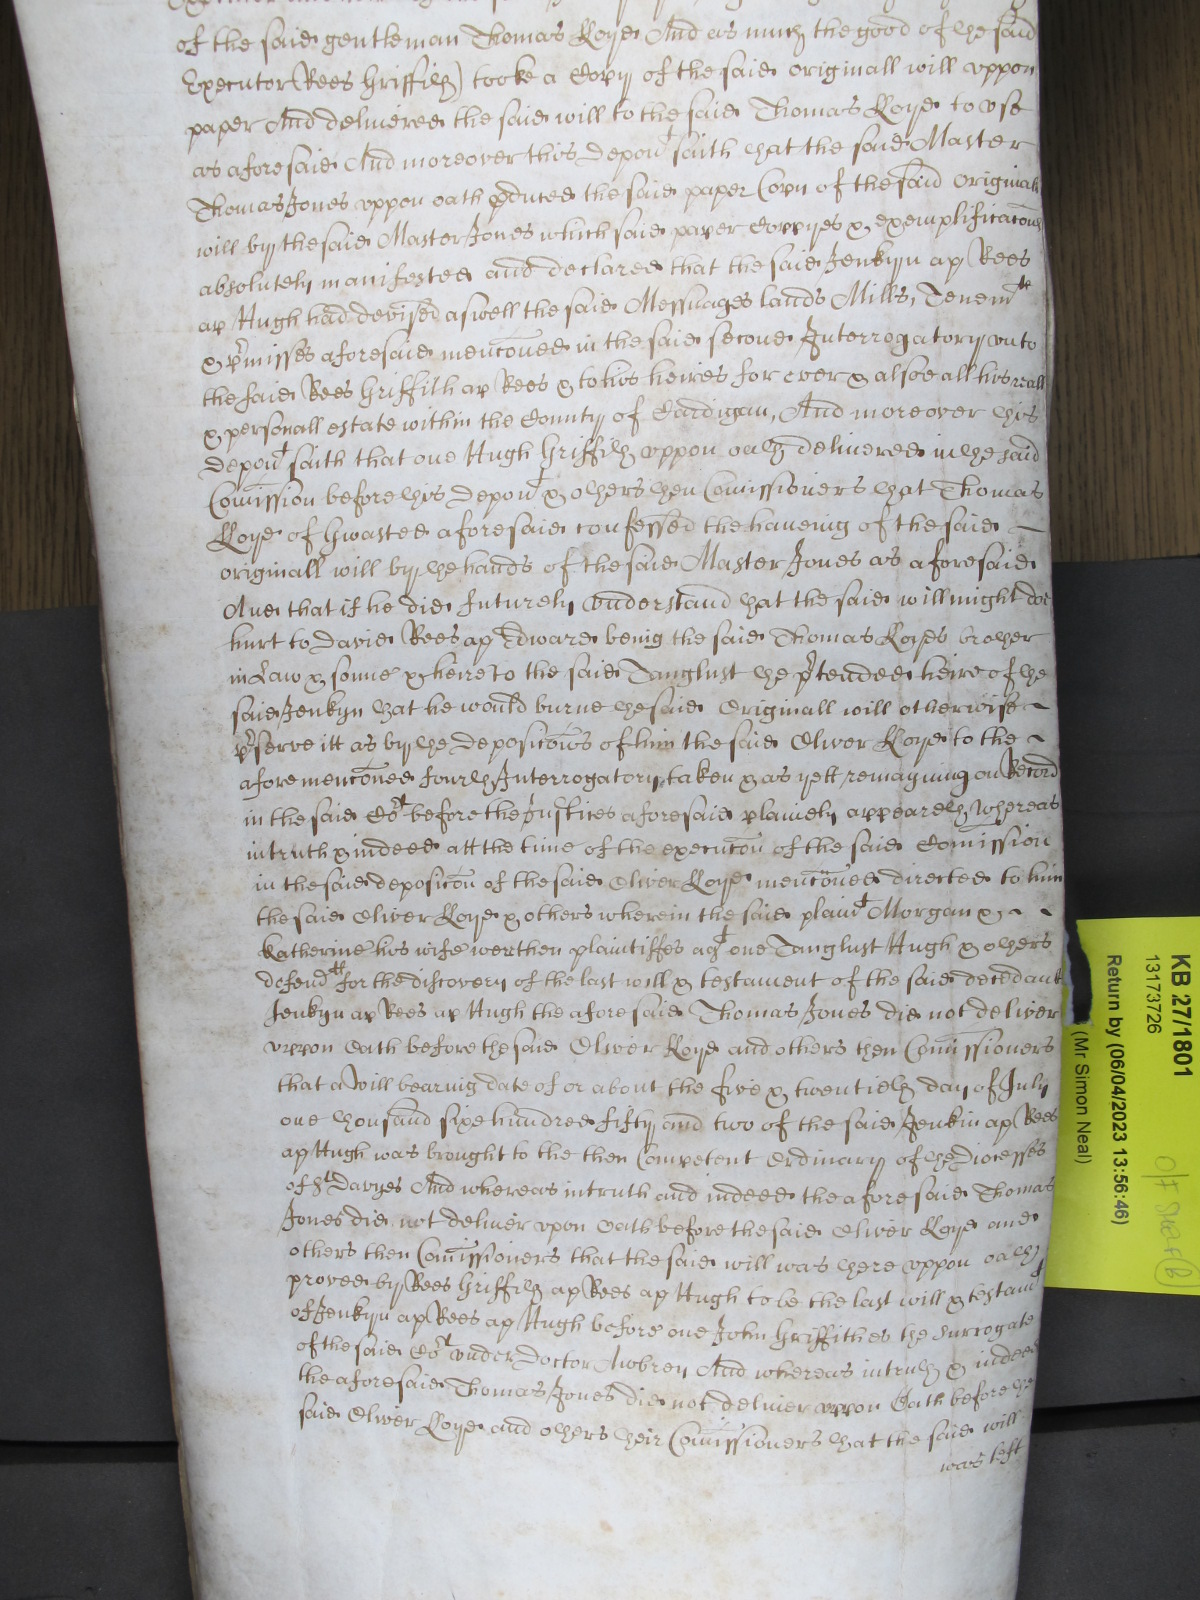 of the said gentleman Thomas Lloyd And as much the good of the said
Executor Rees Griffith) tooke a Copy of the said originall will vppon
paper And delivered the said will to the said Thomas Lloyd to vse
as aforesaid And moreover this depont saith that the said Master
Thomas Jones vppon oath pduced the said paper Copy of the said originall
will by the said Master Jones which said paper Coppyes & exemplificacons
absolutely manifested and declared that the said Jenkyn ap Rees
ap Hugh had devised aswell the said Messuages lands Mills, Tenemts
& pmisses aforesaid menconed in the said second Interrogatory vnto
the said Rees Griffith ap Rees & to his heires for ever & alsoe all his reall
& personall estate within the County of Cardigan, And moreover this
depont saith that one Hugh Griffith vppon oath delivered in the said
Comission before this depont & others then Comissioners that Thomas
Lloyd of Gwasted aforesaid confessed the haveing of the said
originall will by the hands of the said Master Jones as aforesaid
And that if he did futurely vnderstand that the said will might doe
hurt to David Rees ap Edward being the said Thomas Lloyds brother
in Law & sonne & heire to the said Tanglust the ptended heire of the
said Jenkyn that he would burne the said Originall will otherwise
pserve itt as by the deposicons of him the said Oliver Lloyd to the
aforemenconed fourth Interrogatory taken & as yett remayning on Record
in the said Cort before the Justices aforesaid plainely appeareth Whereas
in truth & indeed att the time of the execucon of the said Comission
in the said deposicon of the said Oliver Lloyd menconed directed to him
the said Oliver Lloyd & others wherein the said plaint Morgan &
Katherine his wife wer then plaintiffes agt one Tanglust Hugh & others
defendts for the discovery of the last will & testament of the said decedant
Jenkyn ap Rees ap Hugh the aforesaid Thomas Jones did not deliver
vppon Oath before the said Oliver Lloyd and others then Comissioners
that a Will bearing date of or about the five & twentieth day of July
one thousand sixe hundred fifty and two of the said Jenkin ap Rees
ap Hugh was brought to the then Competent Ordinary of the Diocesses
of St Davyes And whereas in truth and indeed the aforesaid Thomas
Jones did not deliver vpon Oath before the said Oliver Lloyd and
others then Comissioners that the said will was there vppon oath
proved by Rees Griffith ap Rees ap Hugh to be the last will & testamt
of Jenkyn ap Rees ap Hugh before one John Griffithes the Surrogate
of the said Cort vnder Doctor Awbrey And whereas in truth & indeed
the aforesaid Thomas Jones did not deliver vppon Oath before the
said Oliver Lloyd and others their Comissioners that the said will
was left
KB 27/1801
13173726
Return by (06/04/2023 13:56:46)
(Mr Simon Neal)